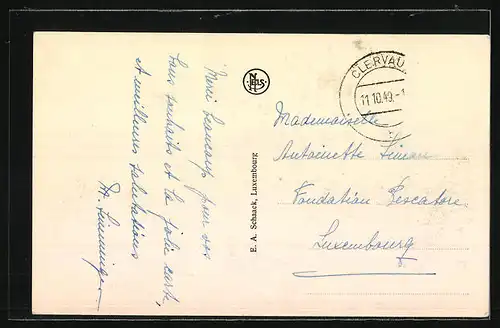 Merci beaucoup pour vos
bons souhaits et la jolie carte,
et meilleures salutations
NELS
E. A. Schaack, Luxembourg
CLERVAU
11.10.49.-1
Mademoiselle
Antoinette Simon
Fondation Pescatore
Luxembourg